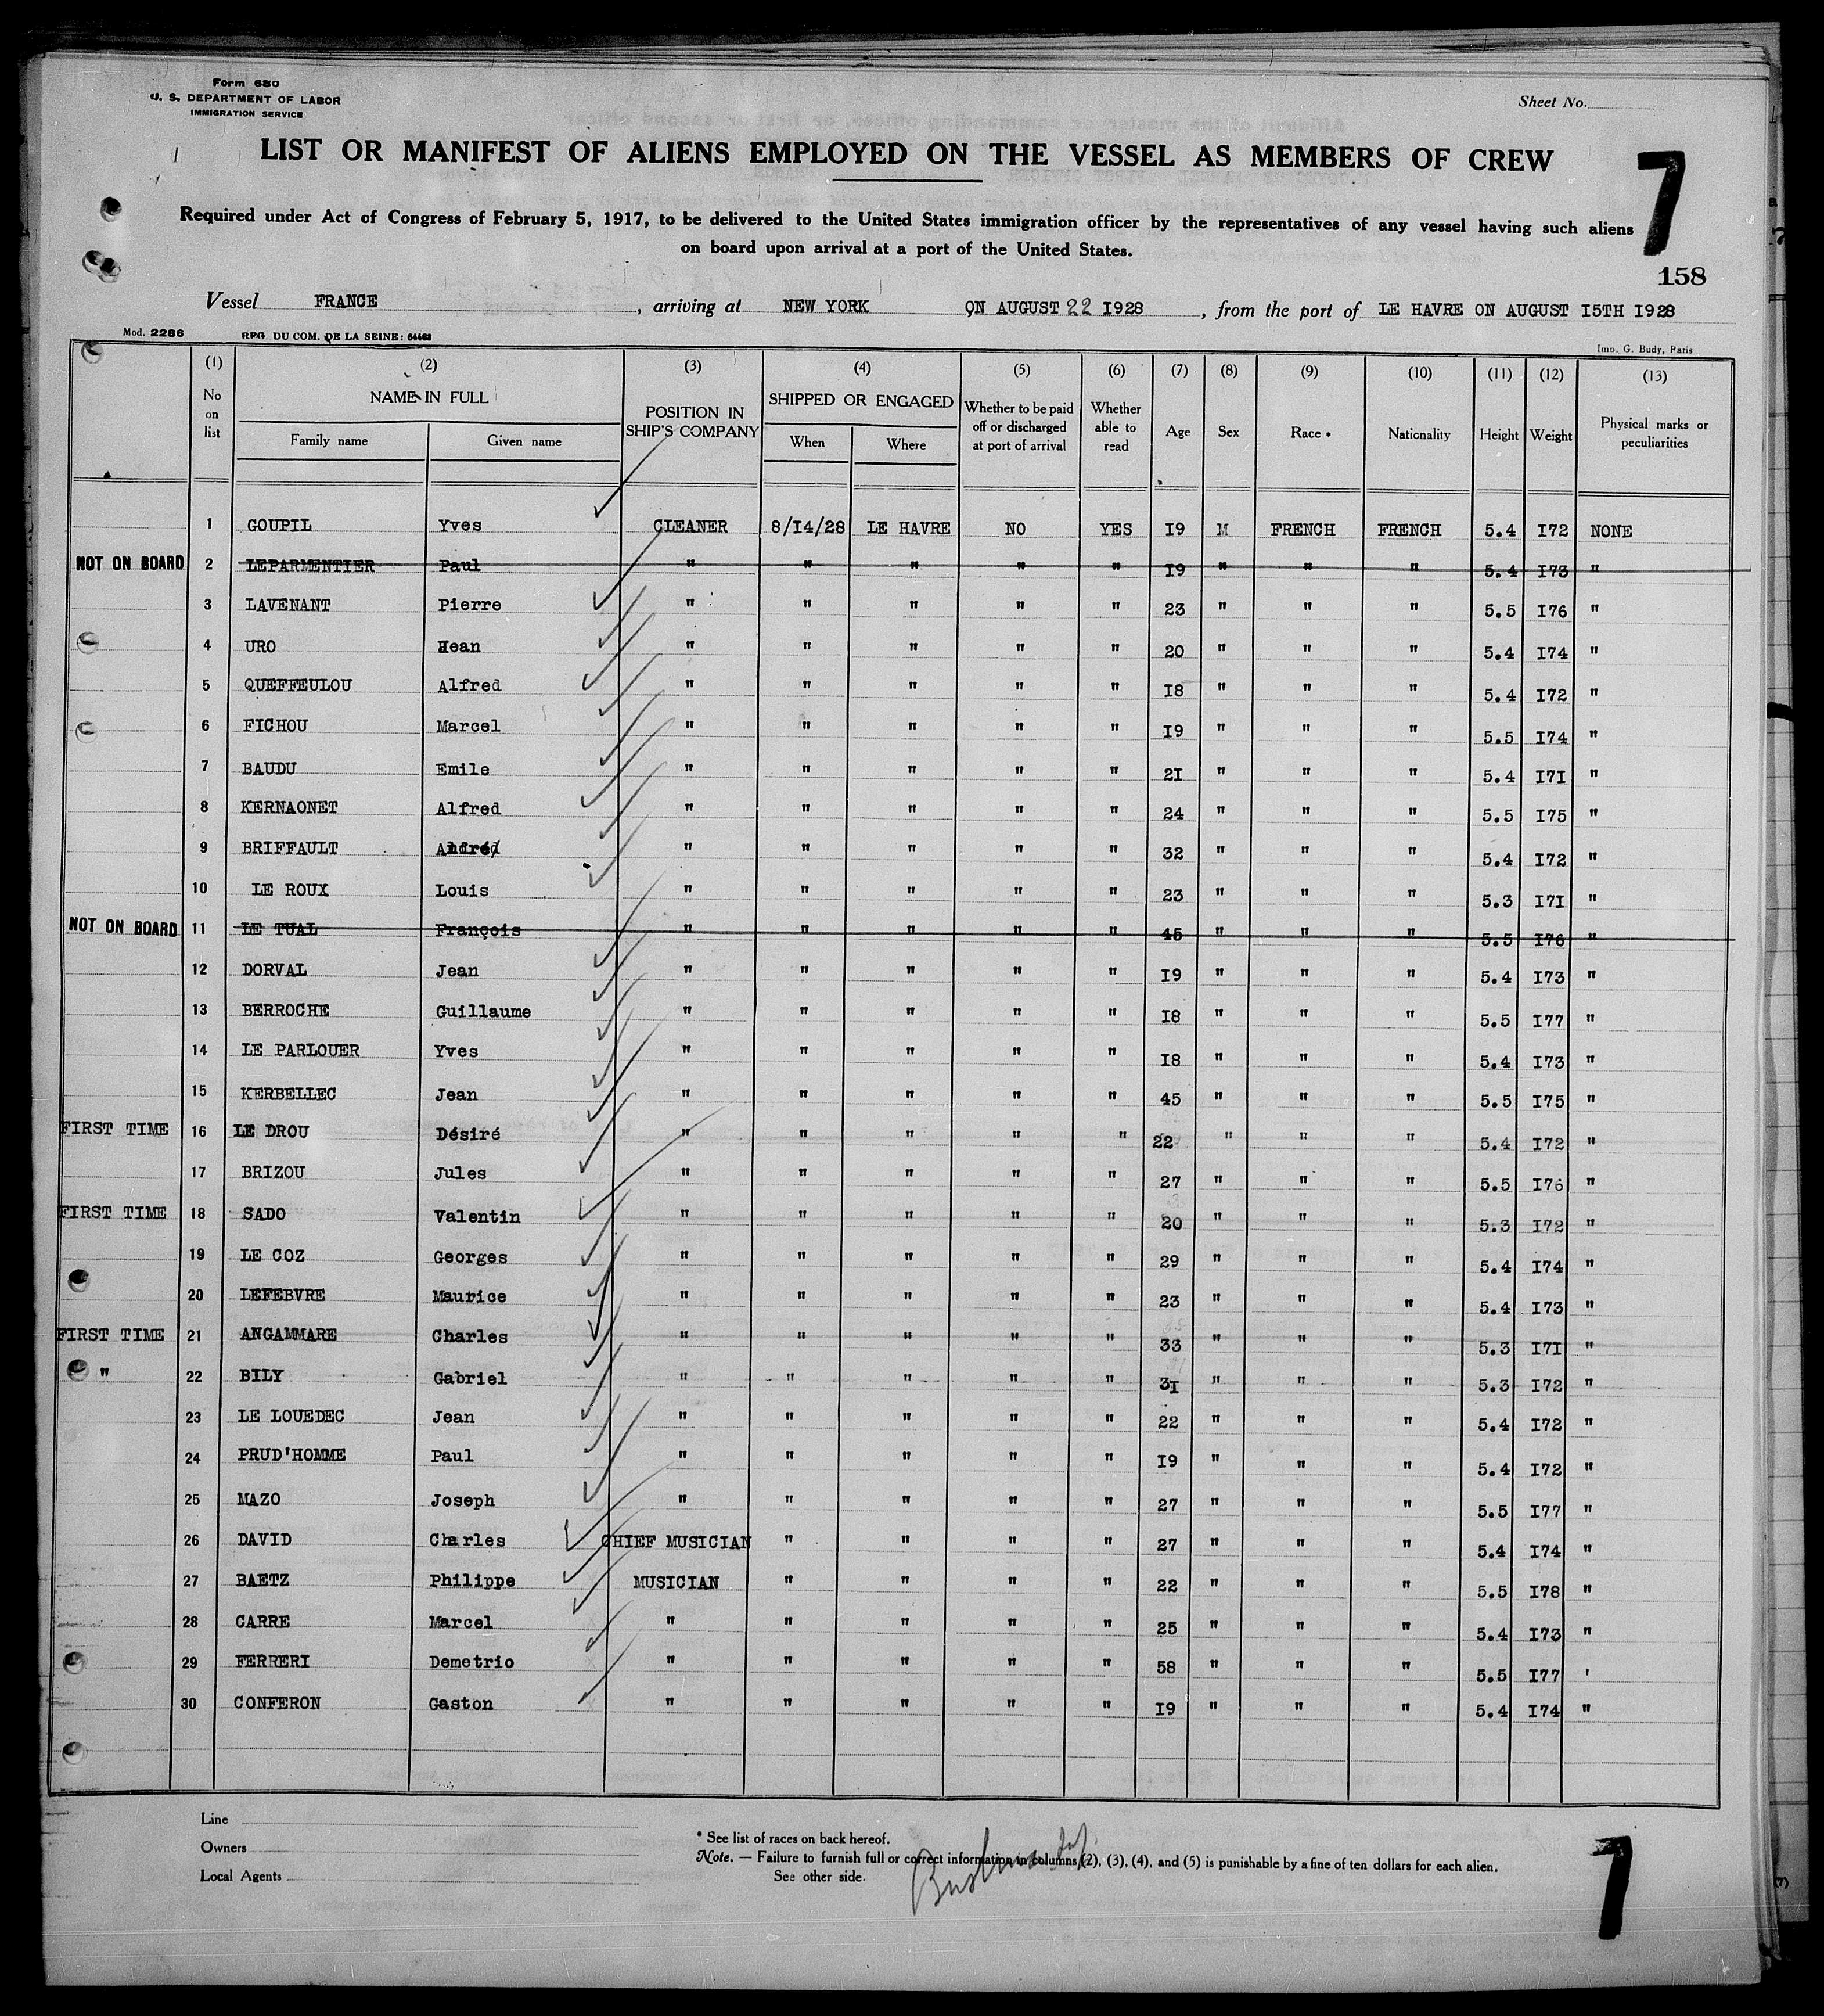 Form 680
U. S. DEPARTMENT OF LABOR
IMMIGRATION SERVICE
Sheet No.
LIST OR MANIFEST OF ALIENS EMPLOYED ON THE VESSEL AS MEMBERS OF CREW
7
Required under Act of Congress of February 5, 1917, to be delivered to the United States immigration officer by the representatives of any vessel having such aliens
on board upon arrival at a port of the United States.
158
Vessel FRANCE , arriving at NEW YORK ON AUGUST 22 1928 , from the port of LE HAVRE ON AUGUST I5TH I928
Mod. 2286 REG. DU COM. DE LA SEINE: 64483 Imp. G. Budy, Paris
(1) (2) (3) (4) (5) (6) (7) (8) (9) (10) (11) (12) (13)
No on list NAME IN FULL Family name Given name POSITION IN SHIP'S COMPANY SHIPPED OR ENGAGED When Where Whether to be paid off or discharged at port of arrival Whether able to read Age Sex Race * Nationality Height Weight Physical marks or peculiarities
1 GOUPIL Yves CLEANER 8/I4/28 LE HAVRE NO YES I9 M FRENCH FRENCH 5.4 I72 NONE
NOT ON BOARD 2 LEPARMENTIER Paul " " " " " I9 " " " 5.4 I73 "
3 LAVENANT Pierre " " " " " 23 " " " 5.5 I76 "
4 URO Hean " " " " " 20 " " " 5.4 I74 "
5 QUEFFEULOU Alfred " " " " " I8 " " " 5.4 I72 "
6 FICHOU Marcel " " " " " I9 " " " 5.5 I74 "
7 BAUDU Emile " " " " " 2I " " " 5.4 I7I "
8 KERNAONET Alfred " " " " " 24 " " " 5.5 I75 "
9 BRIFFAULT André " " " " " 32 " " " 5.4 I72 "
10 LE ROUX Louis " " " " " 23 " " " 5.3 I7I "
NOT ON BOARD 11 LE TUAL François " " " " " 45 " " " 5.5 I76 "
12 DORVAL Jean " " " " " I9 " " " 5.4 I73 "
13 BERROCHE Guillaume " " " " " I8 " " " 5.5 I77 "
14 LE PARLOUER Yves " " " " " I8 " " " 5.4 I73 "
15 KERBELLEC Jean " " " " " 45 " " " 5.5 I75 "
FIRST TIME 16 LE DROU Désiré " " " " " 22 " " " 5.4 I72 "
17 BRIZOU Jules " " " " " 27 " " " 5.5 I76 "
FIRST TIME 18 SADO Valentin " " " " " 20 " " " 5.3 I72 "
19 LE COZ Georges " " " " " 29 " " " 5.4 I74 "
20 LEFEBVRE Maurice " " " " " 23 " " " 5.4 I73 "
FIRST TIME 21 ANGAMMARE Charles " " " " " 33 " " " 5.3 I7I "
" 22 BILY Gabriel " " " " " 3I " " " 5.3 I72 "
23 LE LOUEDEC Jean " " " " " 22 " " " 5.4 I72 "
24 PRUD'HOMME Paul " " " " " I9 " " " 5.4 I72 "
25 MAZO Joseph " " " " " 27 " " " 5.5 I77 "
26 DAVID Charles CHIEF MUSICIAN " " " " 27 " " " 5.4 I74 "
27 BAETZ Philippe MUSICIAN " " " " 22 " " " 5.5 I78 "
28 CARRE Marcel " " " " " 25 " " " 5.4 I73 "
29 FERRERI Demetrio " " " " " 58 " " " 5.5 I77 '
30 CONFERON Gaston " " " " " I9 " " " 5.4 I74 "
Line
Owners
Local Agents
* See list of races on back hereof.
Note. — Failure to furnish full or correct information in columns (2), (3), (4), and (5) is punishable by a fine of ten dollars for each alien.
See other side.
7